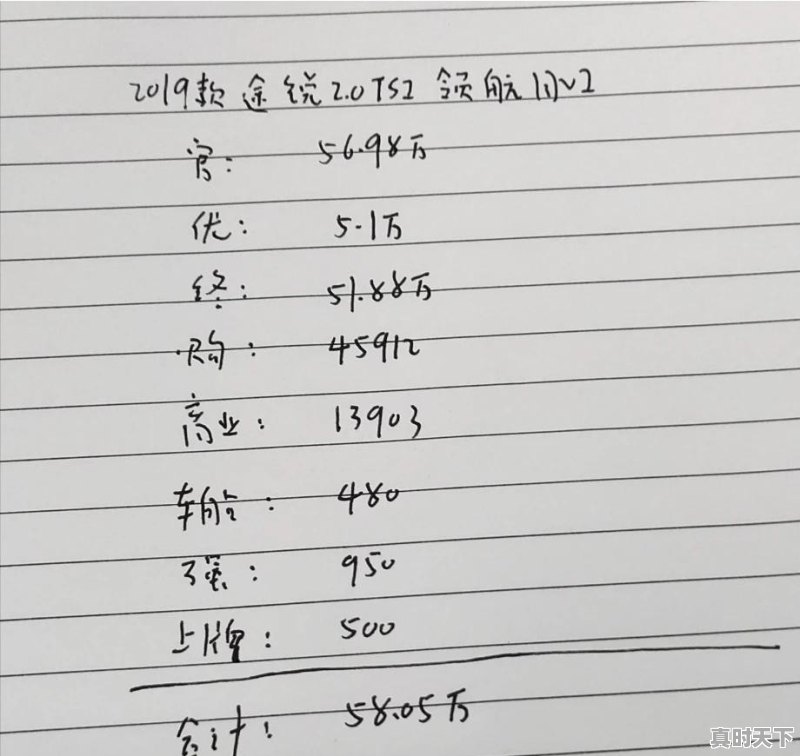 2019款途锐2.0TSI 领航
官: 56.98万
优: 5.1万
终: 51.88万
购: 45912
商业: 13903
车船: 480
强: 950
上牌: 500
合计: 58.05万
真时天下